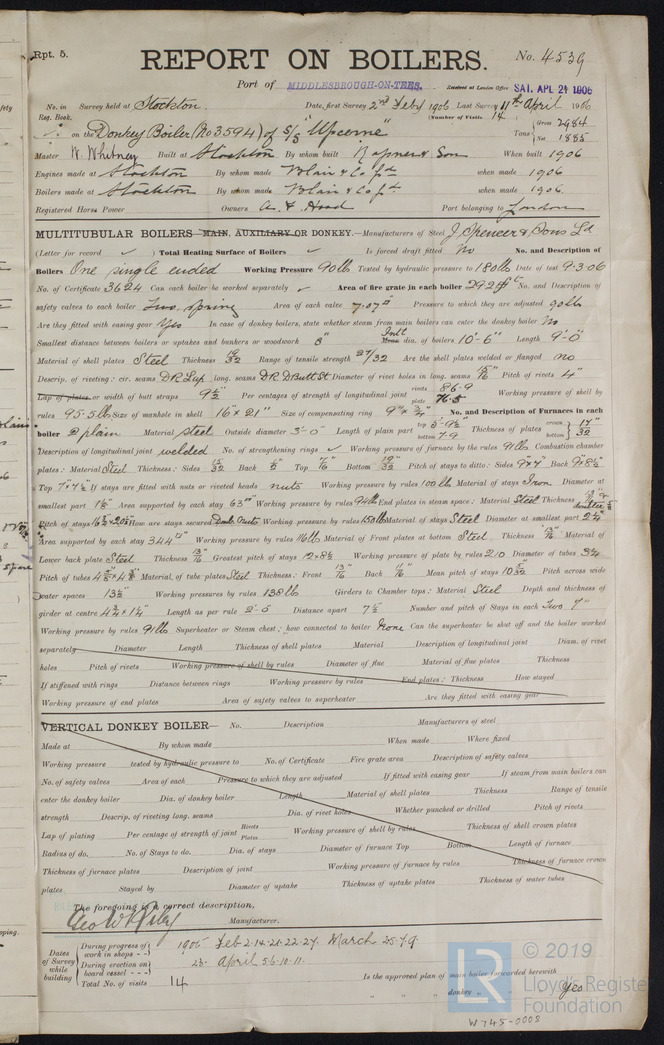 Rpt. 5.
REPORT ON BOILERS.
No. 4539
Port of MIDDLESBROUGH-ON-TEES. Received at London Office SAT. APL 21 1906
No. in Survey held at Stockton. Date, first Survey 2nd Feby 1906 Last Survey 11th April 1906
Reg. Book. (Number of Visits 14)
on the Donkey Boiler (No 3594) of S/S "Upcerne" Tons { Gross 2984 Net 1885
Master W. Whitney Built at Stockton By whom built Ropner & Son When built 1906
Engines made at Stockton By whom made Blair & Co Ld when made 1906
Boilers made at Stockton By whom made Blair & Co Ld when made 1906
Registered Horse Power Owners A. F. Hood Port belonging to London
MULTITUBULAR BOILERS MAIN, AUXILIARY OR DONKEY.—Manufacturers of Steel J. Spencer & Sons Ld
(Letter for record ✓ ) Total Heating Surface of Boilers ✓ Is forced draft fitted No No. and Description of
Boilers One single ended Working Pressure 90 lb Tested by hydraulic pressure to 180 lb Date of test 9.3.06
No. of Certificate 3624 Can each boiler be worked separately ✓ Area of fire grate in each boiler No. and Description of
safety valves to each boiler Two, spring Area of each valve 7.07" Pressure to which they are adjusted 90 lb
Are they fitted with easing gear Yes In case of donkey boilers, state whether steam from main boilers can enter the donkey boiler No
Smallest distance between boilers or uptakes and bunkers or woodwork 8" Mean dia. of boilers 10'-6" Length 9'-0"
Material of shell plates Steel Thickness 19/32 Range of tensile strength 27/32 Are the shell plates welded or flanged no
Descrip. of riveting: cir. seams DR Lap long. seams DR DButtSt Diameter of rivet holes in long. seams 15/16 Pitch of rivets 4"
Lap of plates or width of butt straps 9½ Per centages of strength of longitudinal joint rivets 86.9 plate 76.5 Working pressure of shell by
rules 95.5 lb Size of manhole in shell 16" x 21" Size of compensating ring No. and Description of Furnaces in each
boiler 2 plain Material Steel Outside diameter 3'-0 Length of plain part top bottom Thickness of plates crown bottom } 17"/32
Description of longitudinal joint welded No. of strengthening rings ✓ Working pressure of furnace by the rules 91 lb Combustion chamber
plates: Material Steel Thickness: Sides Back Top Bottom Pitch of stays to ditto: Sides 9" x 7" Back 9" x 8½"
Top 7" x 7½" If stays are fitted with nuts or riveted heads nuts Working pressure by rules 100 lb Material of stays Iron Diameter at
smallest part 1½" Area supported by each stay 63" Working pressure by rules 94 lb End plates in steam space: Material Steel Thickness
Pitch of stays How are stays secured Doub. Nuts Working pressure by rules Material of stays Steel Diameter at smallest part
Area supported by each stay 344" Working pressure by rules 116 lb Material of Front plates at bottom Steel Thickness 13/16 Material of
Lower back plate Steel Thickness 13/16 Greatest pitch of stays 12 x 8½ Working pressure of plate by rules 210 Diameter of tubes 3¼
Pitch of tubes Material of tube plates Steel Thickness: Front 13/16 Back 11/16 Mean pitch of stays Pitch across wide
water spaces 13½" Working pressures by rules 138 lb Girders to Chamber tops: Material Steel Depth and thickness of
girder at centre Length as per rule Distance apart 7½ Number and pitch of Stays in each Two 7"
Working pressure by rules 91 lb Superheater or Steam chest; how connected to boiler None Can the superheater be shut off and the boiler worked
separately Diameter Length Thickness of shell plates Material Description of longitudinal joint Diam. of rivet
holes Pitch of rivets Working pressure of shell by rules Diameter of flue Material of flue plates Thickness
If stiffened with rings Distance between rings Working pressure by rules End plates: Thickness How stayed
Working pressure of end plates Area of safety valves to superheater Are they fitted with easing gear
VERTICAL DONKEY BOILER— No. Description Manufacturers of steel
Made at By whom made When made Where fixed
Working pressure tested by hydraulic pressure to No. of Certificate Fire grate area Description of safety valves
No. of safety valves Area of each Pressure to which they are adjusted If fitted with easing gear If steam from main boilers can
enter the donkey boiler Dia. of donkey boiler Length Material of shell plates Thickness Range of tensile
strength Descrip. of riveting long. seams Dia. of rivet holes Whether punched or drilled Pitch of rivets
Lap of plating Per centage of strength of joint Rivets Plates Working pressure of shell by rules Thickness of shell crown plates
Radius of do. No. of Stays to do. Dia. of stays Diameter of furnace Top Bottom Length of furnace
Thickness of furnace plates Description of joint Working pressure of furnace by rules Thickness of furnace crown
plates Stayed by Diameter of uptake Thickness of uptake plates Thickness of water tubes
The foregoing is a correct description,
Geo W Riley Manufacturer.
Dates of Survey while building
During progress of work in shops - - 1906 Feb 2.14.21.22.27. March 2.5.7.9.
During erection on board vessel - - - 23. April 5.6.10.11.
Total No. of visits 14
Is the approved plan of main boiler forwarded herewith
" " " donkey " " Yes
© 2019
LR Lloyd's Register Foundation
W745-0008